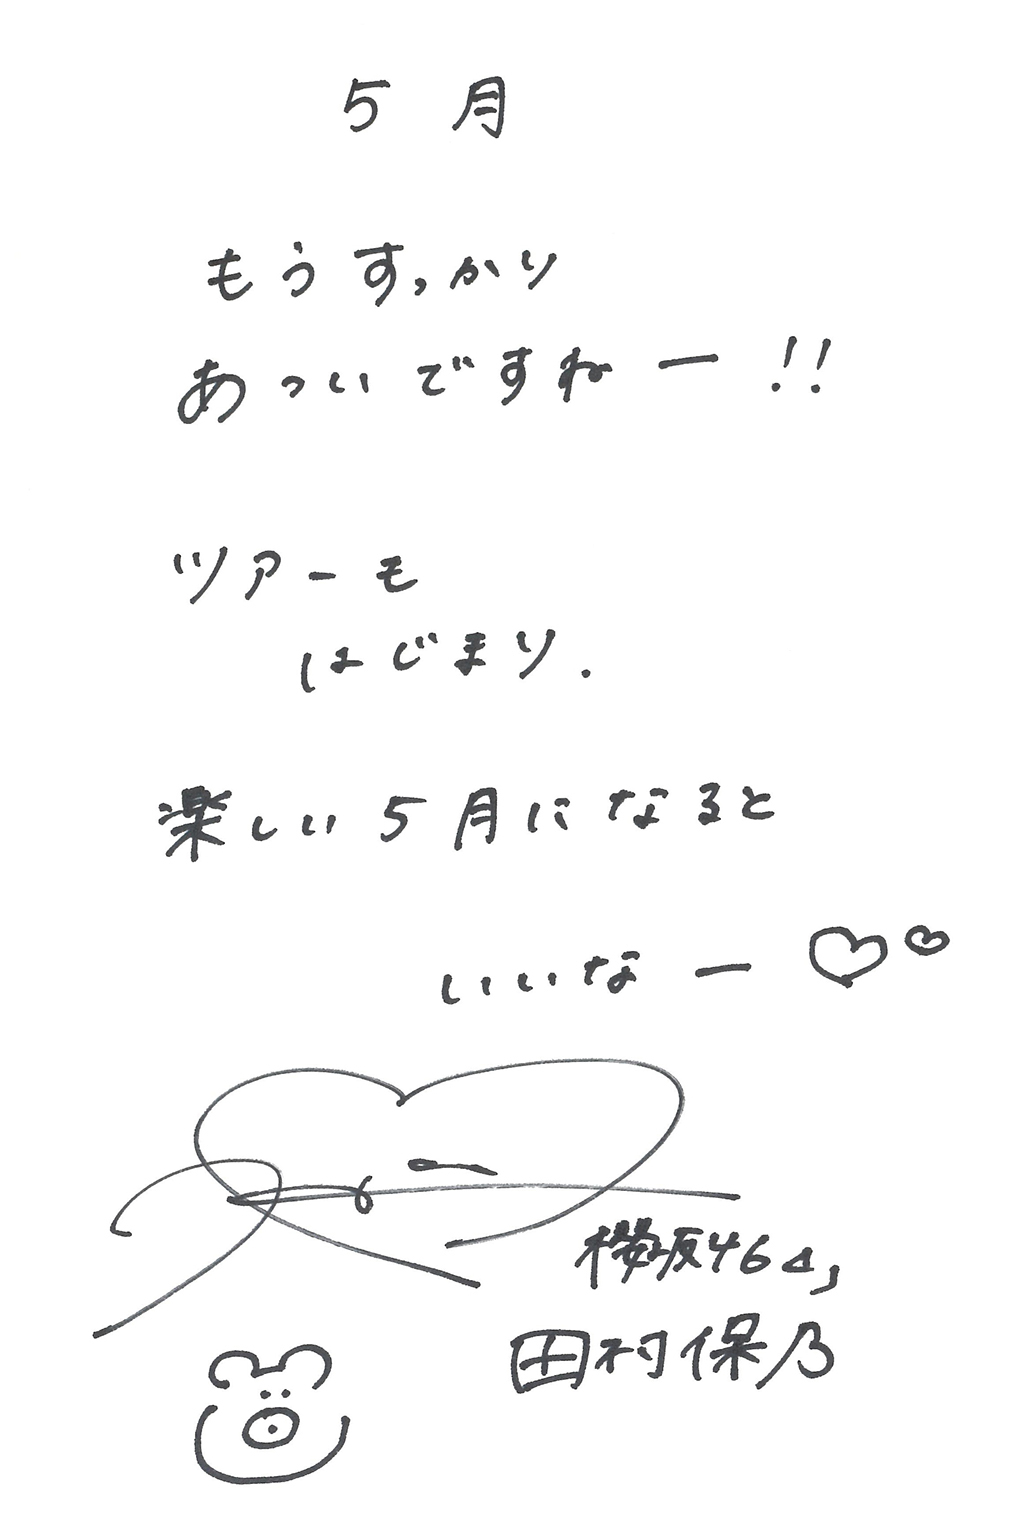 5月
もうすっかり
あついですねー!!
ツアーも
はじまり.
楽しい5月になると
いいなー♡♡
櫻坂46
田村保乃